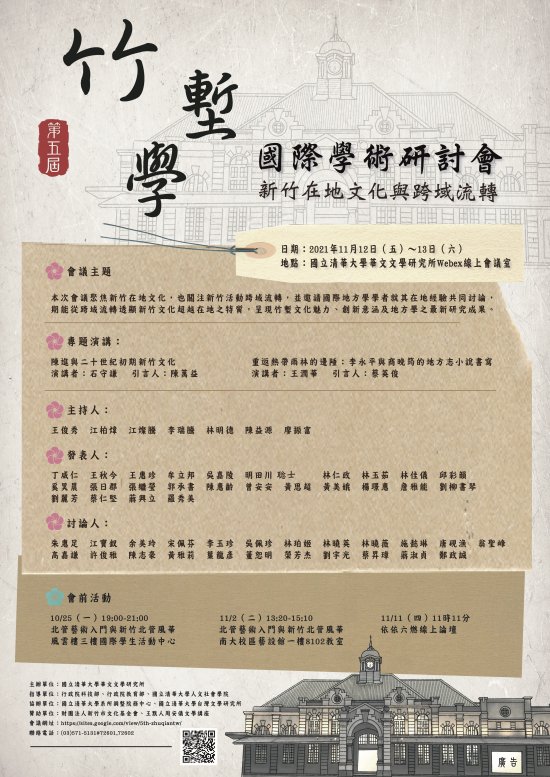 竹塹學
第五屆
國際學術研討會
新竹在地文化與跨域流轉
日期：2021年11月12日（五）～13日（六）
地點：國立清華大學華文文學研究所Webex線上會議室
會議主題
本次會議聚焦新竹在地文化，也關注新竹活動跨域流轉，並邀請國際地方學學者就其在地經驗共同討論，
期能從跨域流轉透顯新竹文化超越在地之特質，呈現竹塹文化魅力、創新意涵及地方學之最新研究成果。
專題演講：
陳進與二十世紀初期新竹文化
演講者：石守謙 引言人：陳萬益
重返熱帶雨林的邊陲：李永平與商晚筠的地方志小說書寫
演講者：王潤華 引言人：蔡英俊
主持人：
王俊秀 江柏煒 江燦騰 李瑞騰 林明德 陳益源 廖振富
發表人：
丁威仁 王秋今 王惠珍 牟立邦 吳嘉陵 明田川聡士 林仁政 林玉茹 林佳儀 邱彩韻
吳昊晨 張日郡 張繼瑩 郭承書 陳惠齡 曾安安 黃思超 黃美娥 楊璟惠 詹雅能 劉柳書琴
劉麗芳 蔡仁堅 蔣興立 羅秀美
討論人：
朱惠足 江寶釵 余美玲 宋佩芬 李玉珍 吳佩珍 林珀姬 林曉英 林曉薇 施懿琳 唐硯漁 翁聖峰
高嘉謙 許俊雅 陳志豪 黃雅莉 葉龍彥 董恕明 榮芳杰 劉宇光 蔡昇璋 蔣淑貞 鄭政誠
會前活動
10/25（一）19:00-21:00
北管藝術入門與新竹北管風華
風雲樓三樓國際學生活動中心
11/2（二）13:20-15:10
北管藝術入門與新竹北管風華
南大校區藝設館一樓8102教室
11/11（四）11時11分
依依六燃線上論壇
主辦單位：國立清華大學華文文學研究所
指導單位：行政院科技部、行政院教育部、國立清華大學人文社會學院
協辦單位：國立清華大學系所調整院務中心、國立清華大學台灣文學研究所
贊助單位：財團法人新竹市文化基金會、王默人周安儀文學講座
會議網址：https://sites.google.com/view/5th-zhuqianxtw/
聯絡電話：(03)571-5131#72601,72602
廣告